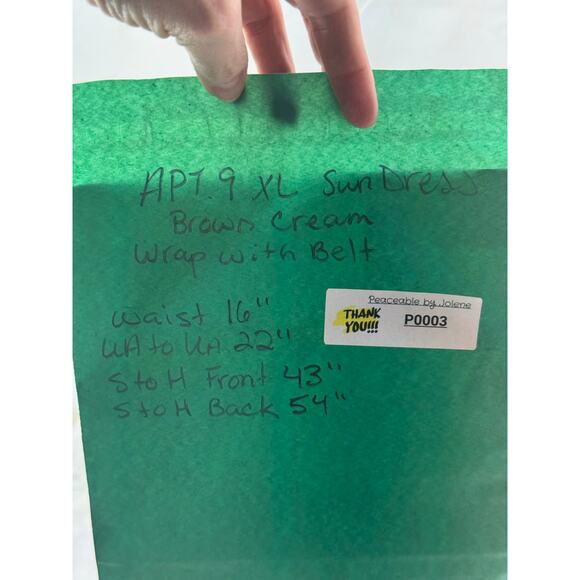 APT.9 XL Sun Dress
Brown Cream
Wrap with Belt
Waist 16"
UA to UA 22"
S to H Front 43"
S to H Back 54"
Peaceable by Jolene
THANK YOU!!!
P0003